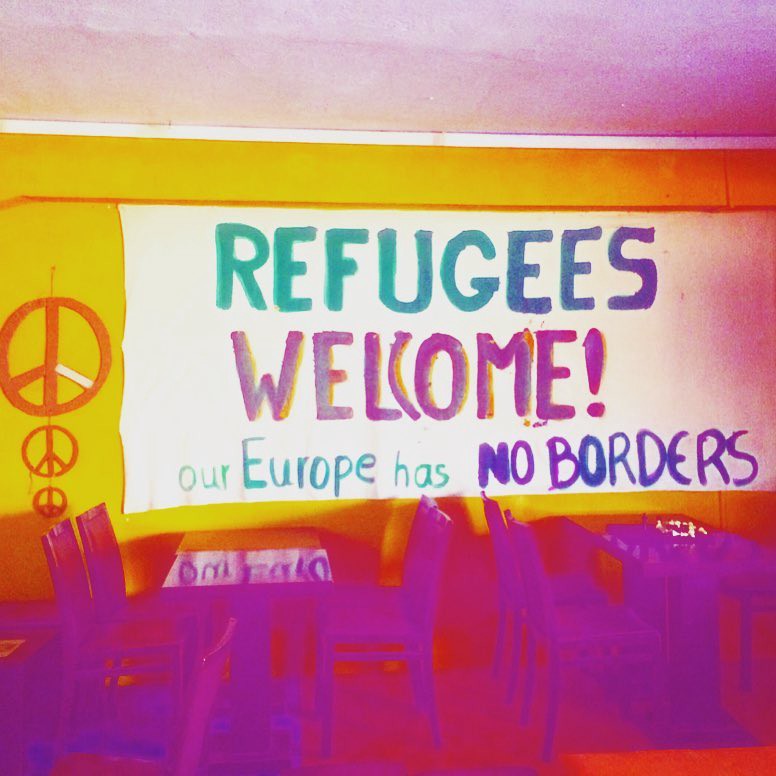 REFUGEES
WELCOME!
our Europe has NO BORDERS